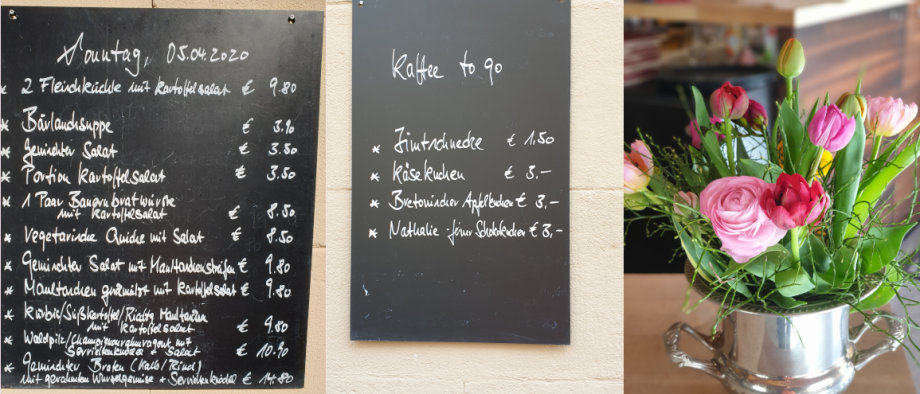 Sonntag, 05.04.2020
* 2 Fleischküchle mit Kartoffelsalat € 9.80
* Bärlauchsuppe € 3.90
* Gemischter Salat € 3.50
* Portion Kartoffelsalat € 3.50
* 1 Paar Bauernbratwürste
mit Kartoffelsalat € 8.50
* Vegetarische Quiche mit Salat € 8.50
* Gemischter Salat mit Maultaschenstreifen € 9.80
* Maultaschen geschmälzt mit Kartoffelsalat € 9.80
* Kürbis/Süßkartoffel/Ricotta Maultaschen
mit Kartoffelsalat € 9.80
* Waldpilz/Champignonrahmragout mit
Serviettenknödel + Salat € 10.90
* Gemischter Braten (Kalb/Rind)
mit Wurzelgemüse + Serviettenknödel € 14.80
Kaffee to go
* Zimtschnecke € 1.50
* Käsekuchen € 3.-
* Bretonischer Apfelkuchen € 3,-
* Nathalie Schokokuchen € 3,-